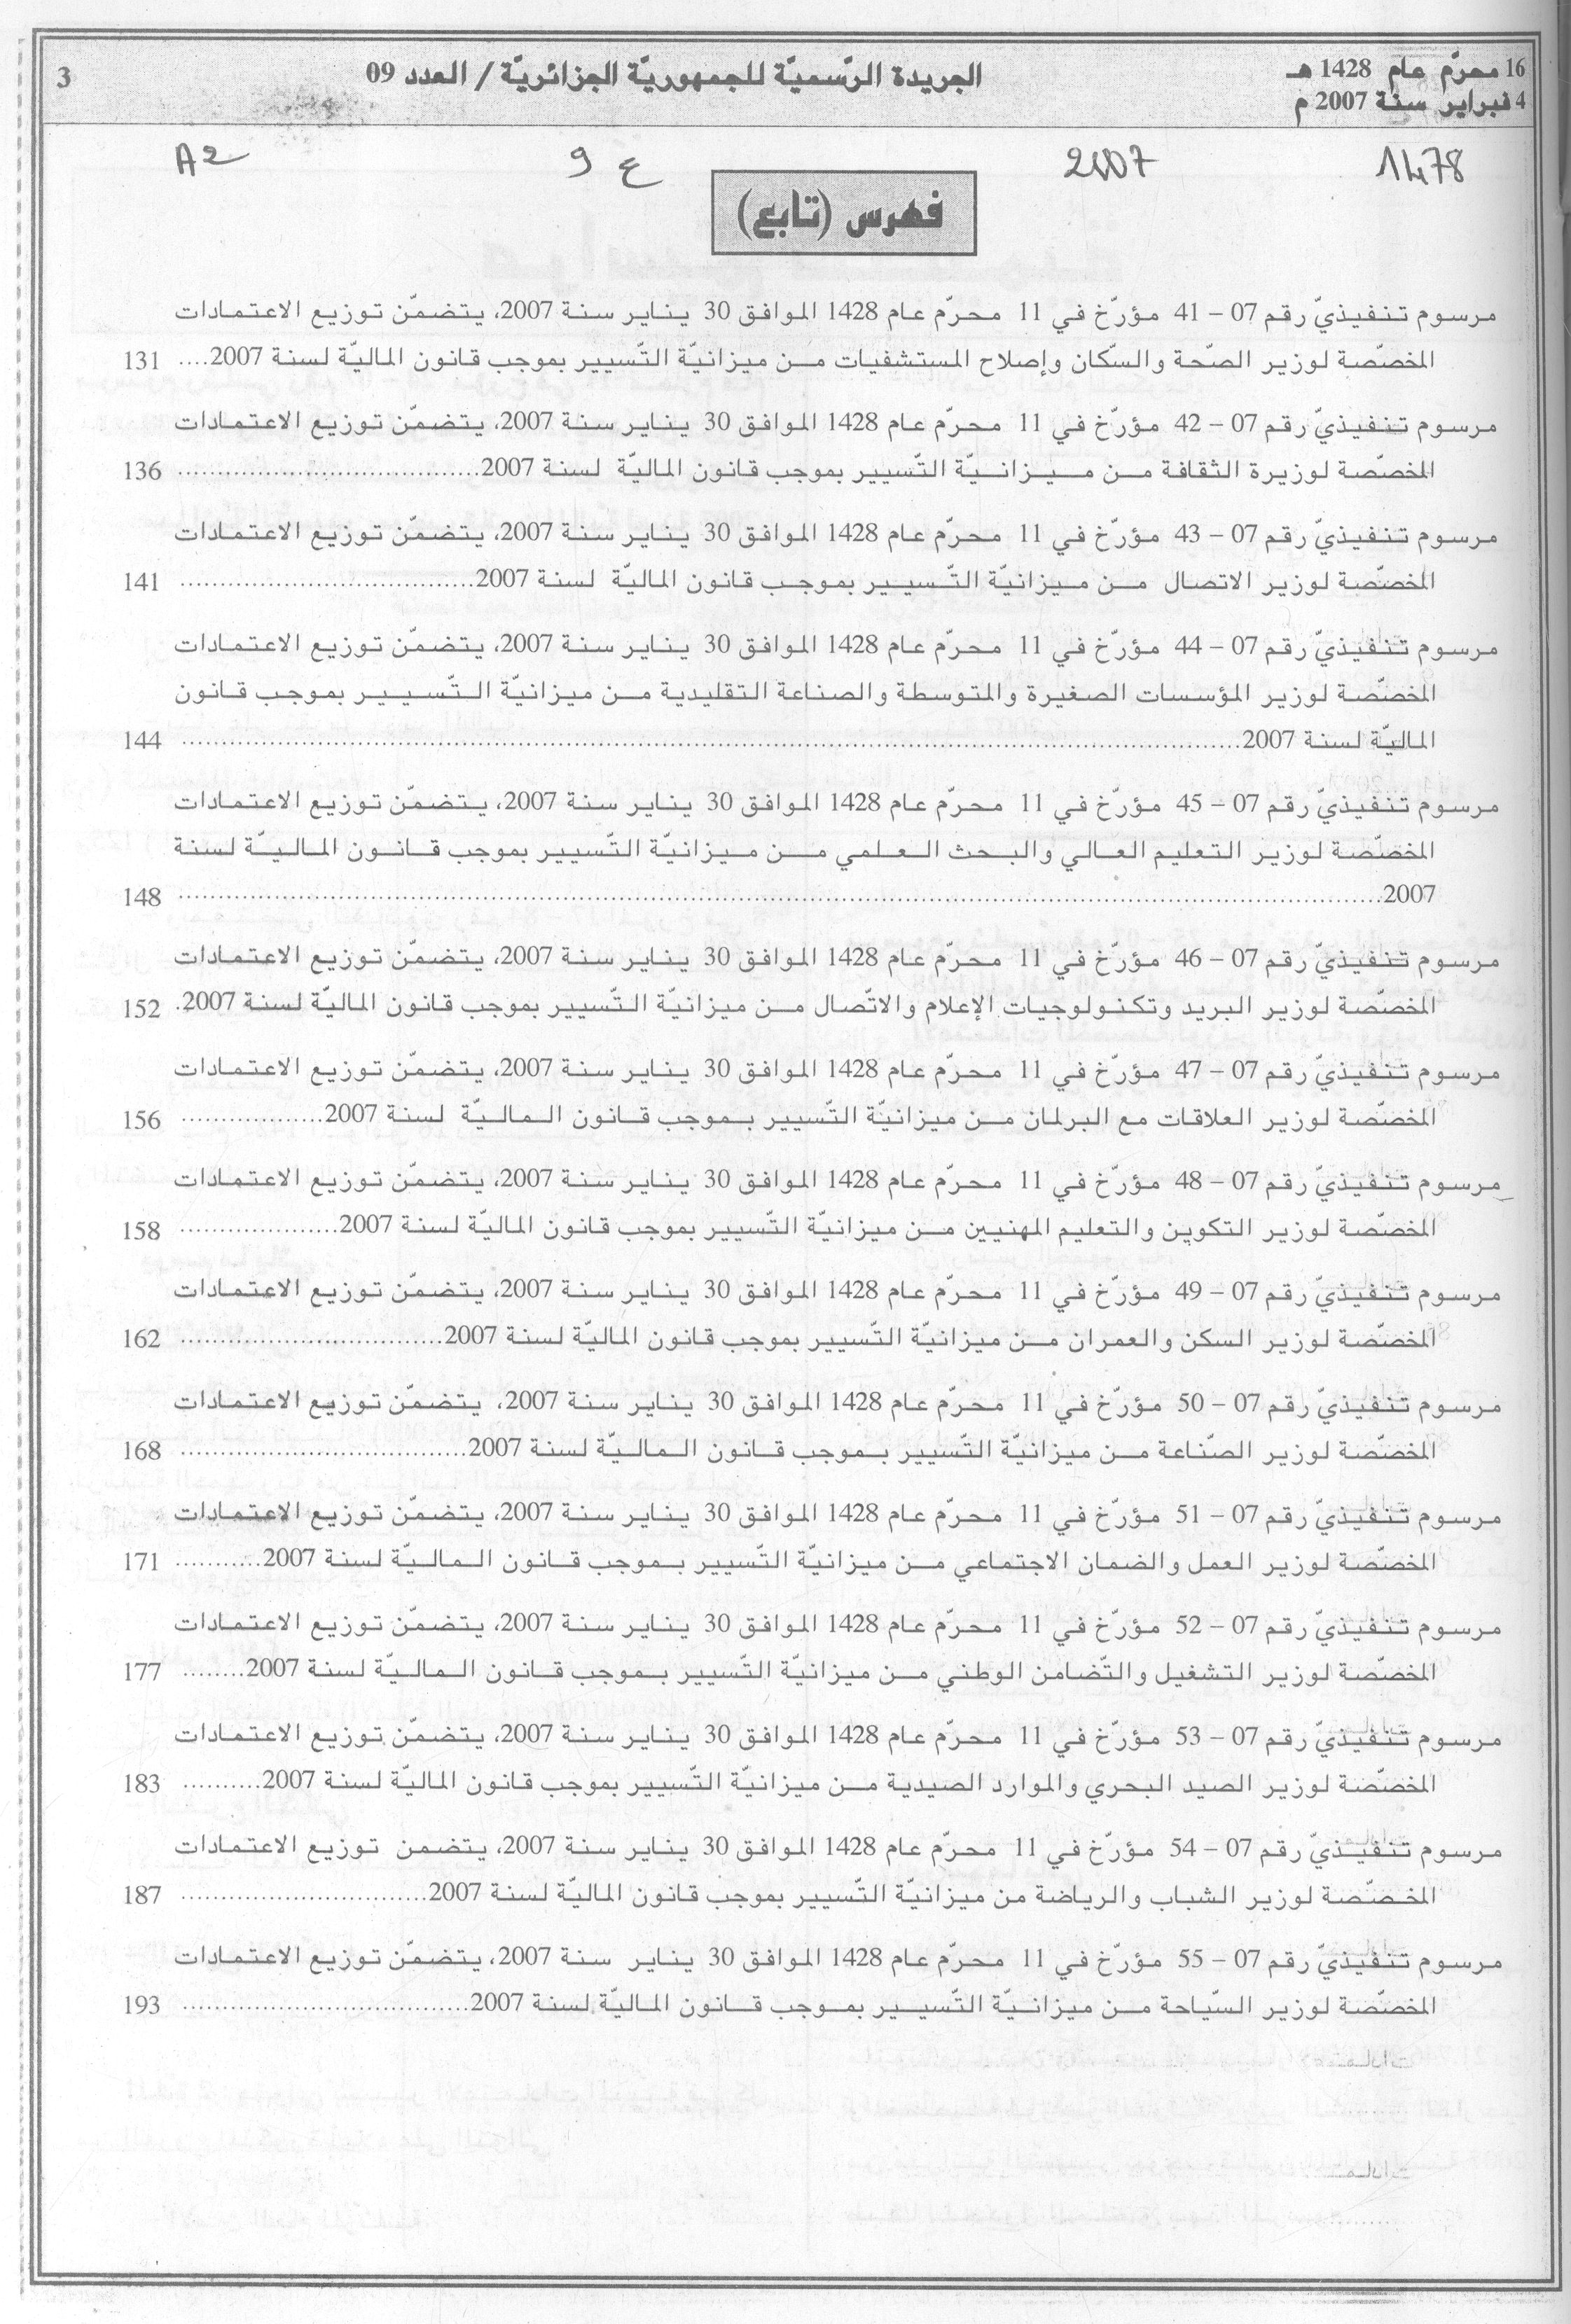 16 محرّم عام 1428 هـ
4 فبراير سنة 2007 م
الجريدة الرّسميّة للجمهوريّة الجزائريّة / العدد 09
3
1478
2007
ع 9
A2
فهرس (تابع)
مرسوم تنفيذيّ رقم 07 – 41 مؤرّخ في 11 محرّم عام 1428 الموافق 30 يناير سنة 2007، يتضمّن توزيع الاعتمادات
المخصّصة لوزير الصّحة والسّكان وإصلاح المستشفيات من ميزانيّة التّسيير بموجب قانون الماليّة لسنة 2007.... 131
مرسوم تنفيذيّ رقم 07 – 42 مؤرّخ في 11 محرّم عام 1428 الموافق 30 يناير سنة 2007، يتضمّن توزيع الاعتمادات
المخصّصة لوزيرة الثقافة من ميزانيّة التّسيير بموجب قانون الماليّة لسنة 2007...................................... 136
مرسوم تنفيذيّ رقم 07 – 43 مؤرّخ في 11 محرّم عام 1428 الموافق 30 يناير سنة 2007، يتضمّن توزيع الاعتمادات
المخصّصة لوزير الاتصال من ميزانيّة التّسيير بموجب قانون الماليّة لسنة 2007...................................... 141
مرسوم تنفيذيّ رقم 07 – 44 مؤرّخ في 11 محرّم عام 1428 الموافق 30 يناير سنة 2007، يتضمّن توزيع الاعتمادات
المخصّصة لوزير المؤسسات الصغيرة والمتوسطة والصناعة التقليدية من ميزانيّة التّسيير بموجب قانون
الماليّة لسنة 2007.................................................................................... 144
مرسوم تنفيذيّ رقم 07 – 45 مؤرّخ في 11 محرّم عام 1428 الموافق 30 يناير سنة 2007، يتضمّن توزيع الاعتمادات
المخصّصة لوزير التعليم العالي والبحث العلمي من ميزانيّة التّسيير بموجب قانون الماليّة لسنة
2007.................................................................................... 148
مرسوم تنفيذيّ رقم 07 – 46 مؤرّخ في 11 محرّم عام 1428 الموافق 30 يناير سنة 2007، يتضمّن توزيع الاعتمادات
المخصّصة لوزير البريد وتكنولوجيات الإعلام والاتّصال من ميزانيّة التّسيير بموجب قانون الماليّة لسنة 2007. 152
مرسوم تنفيذيّ رقم 07 – 47 مؤرّخ في 11 محرّم عام 1428 الموافق 30 يناير سنة 2007، يتضمّن توزيع الاعتمادات
المخصّصة لوزير العلاقات مع البرلمان من ميزانيّة التّسيير بموجب قانون الماليّة لسنة 2007.................. 156
مرسوم تنفيذيّ رقم 07 – 48 مؤرّخ في 11 محرّم عام 1428 الموافق 30 يناير سنة 2007، يتضمّن توزيع الاعتمادات
المخصّصة لوزير التكوين والتعليم المهنيين من ميزانيّة التّسيير بموجب قانون الماليّة لسنة 2007.................... 158
مرسوم تنفيذيّ رقم 07 – 49 مؤرّخ في 11 محرّم عام 1428 الموافق 30 يناير سنة 2007، يتضمّن توزيع الاعتمادات
المخصّصة لوزير السكن والعمران من ميزانيّة التّسيير بموجب قانون الماليّة لسنة 2007................................. 162
مرسوم تنفيذيّ رقم 07 – 50 مؤرّخ في 11 محرّم عام 1428 الموافق 30 يناير سنة 2007، يتضمّن توزيع الاعتمادات
المخصّصة لوزير الصّناعة من ميزانيّة التّسيير بموجب قانون الماليّة لسنة 2007.................................... 168
مرسوم تنفيذيّ رقم 07 – 51 مؤرّخ في 11 محرّم عام 1428 الموافق 30 يناير سنة 2007، يتضمّن توزيع الاعتمادات
المخصّصة لوزير العمل والضمان الاجتماعي من ميزانيّة التّسيير بموجب قانون الماليّة لسنة 2007........... 171
مرسوم تنفيذيّ رقم 07 – 52 مؤرّخ في 11 محرّم عام 1428 الموافق 30 يناير سنة 2007، يتضمّن توزيع الاعتمادات
المخصّصة لوزير التشغيل والتّضامن الوطني من ميزانيّة التّسيير بموجب قانون الماليّة لسنة 2007........ 177
مرسوم تنفيذيّ رقم 07 – 53 مؤرّخ في 11 محرّم عام 1428 الموافق 30 يناير سنة 2007، يتضمّن توزيع الاعتمادات
المخصّصة لوزير الصيد البحري والموارد الصيدية من ميزانيّة التّسيير بموجب قانون الماليّة لسنة 2007.......... 183
مرسوم تنفيذيّ رقم 07 – 54 مؤرّخ في 11 محرّم عام 1428 الموافق 30 يناير سنة 2007، يتضمن توزيع الاعتمادات
المخصّصة لوزير الشباب والرياضة من ميزانيّة التّسيير بموجب قانون الماليّة لسنة 2007............................... 187
مرسوم تنفيذيّ رقم 07 – 55 مؤرّخ في 11 محرّم عام 1428 الموافق 30 يناير سنة 2007، يتضمّن توزيع الاعتمادات
المخصّصة لوزير السّياحة من ميزانيّة التّسيير بموجب قانون الماليّة لسنة 2007.................................... 193